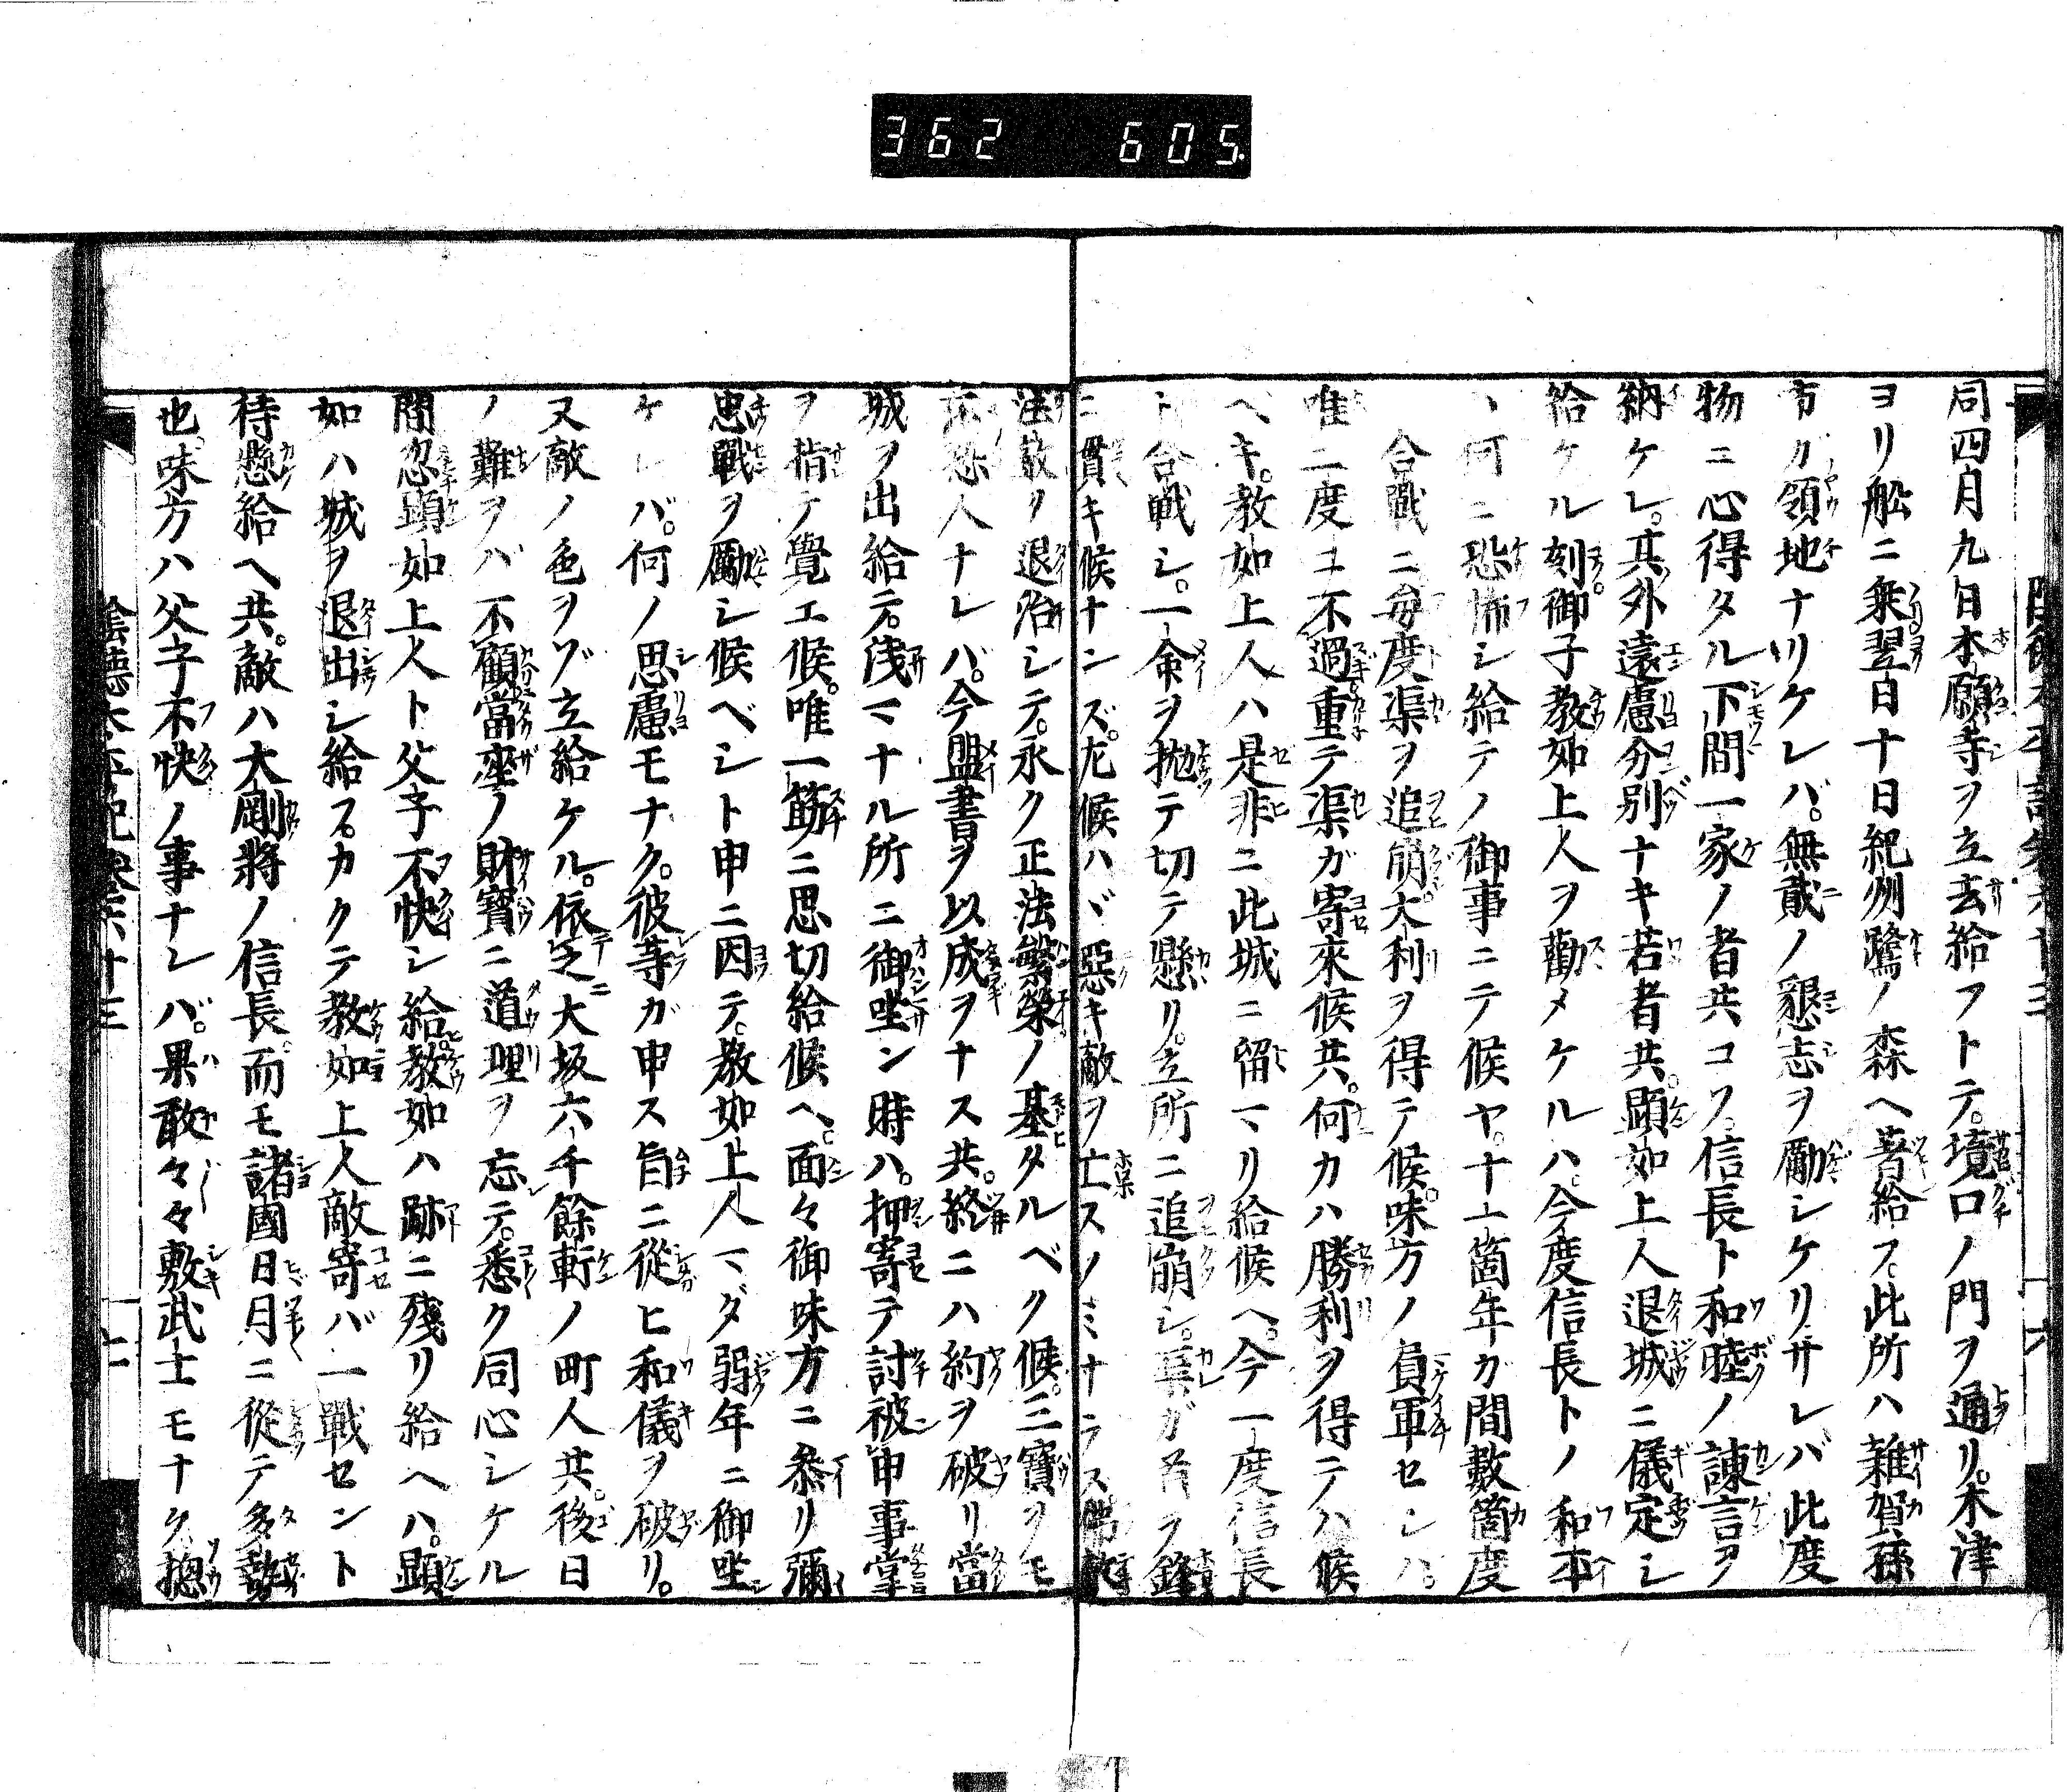 362 605.
同四月九日本願寺ヲ立去給フトテ。境口ノ門ヲ通リ。木津
ヨリ舩ニ乗翌日十日紀州鷺ノ森ヘ着給フ。此所ハ雑賀孫
市カ領地ナリケレバ。無貳ノ懇志ヲ勵シケリサレバ此度
物ニ心得タル下間一家ノ者共コソ。信長ト和睦ノ諫言ヲ
納ケレ。其外遠慮分別ナキ若者共。顕如上人退城ニ儀定シ
給ケル刻。御子教如上人ヲ勸メケルハ。今度信長トノ和平
ハ何ニ恐怖シ給テノ御事ニテ候ヤ。十一箇年カ間數箇度
合戰ニ毎度渠ヲ追崩。大利ヲ得テ候。味方ノ負軍セシハ。
唯二度コ不過重テ渠ガ寄來候共。何カハ勝利ヲ得テハ候
ヘキ。教如上人ハ是非ニ此城ニ留マリ給候ヘ。今一度信長
ト合戦シ。一命ヲ抛テ切テ懸リ。立所ニ追崩シ。渠ガ首ヲ鋒
ニ貫キ候ナンズ。左候ハヾ惡キ敵ヲ亡スノミナラス。佛
法敵ヲ退治シテ。永ク正法繁榮ノ基タルベク候。三寶ヲモ
不恐人ナレバ。今盟書ヲ以成ヲナス共。終ニハ約ヲ破リ當
城ヲ出給テ。浅マナル所ニ御坐ン時ハ。押寄テ討被申事掌
ヲ指テ覺エ候。唯一筋ニ思切給候ヘ。面々御味方ニ参リ彌
忠戰ヲ勵シ候ベシト申ニ因テ。教如上人マダ弱年ニ御坐
ケレバ。何ノ思慮モナク。彼等ガ申ス旨ニ從ヒ和儀ヲ破リ。
又敵ノ色ヲゾ立給ケル。依之大坂六千餘軒ノ町人共。後日
ノ難ヲバ不顧當座ノ財寶ニ道理ヲ忘テ。悉ク同心シケル
間忍顕如上人ト父子不快シ給。教如ハ跡ニ殘リ給ヘハ。顕
如ハ城ヲ退出シ給ヌ。カクテ教如上人敵寄バ一戰セント
待懸給ヘ共。敵ハ大剛將ノ信長。而モ諸國日月ニ從テ多勢
也。味方ハ父子不快ノ事ナレバ。果敢々々敷武士モナク摠
陰德太平記卷六十三